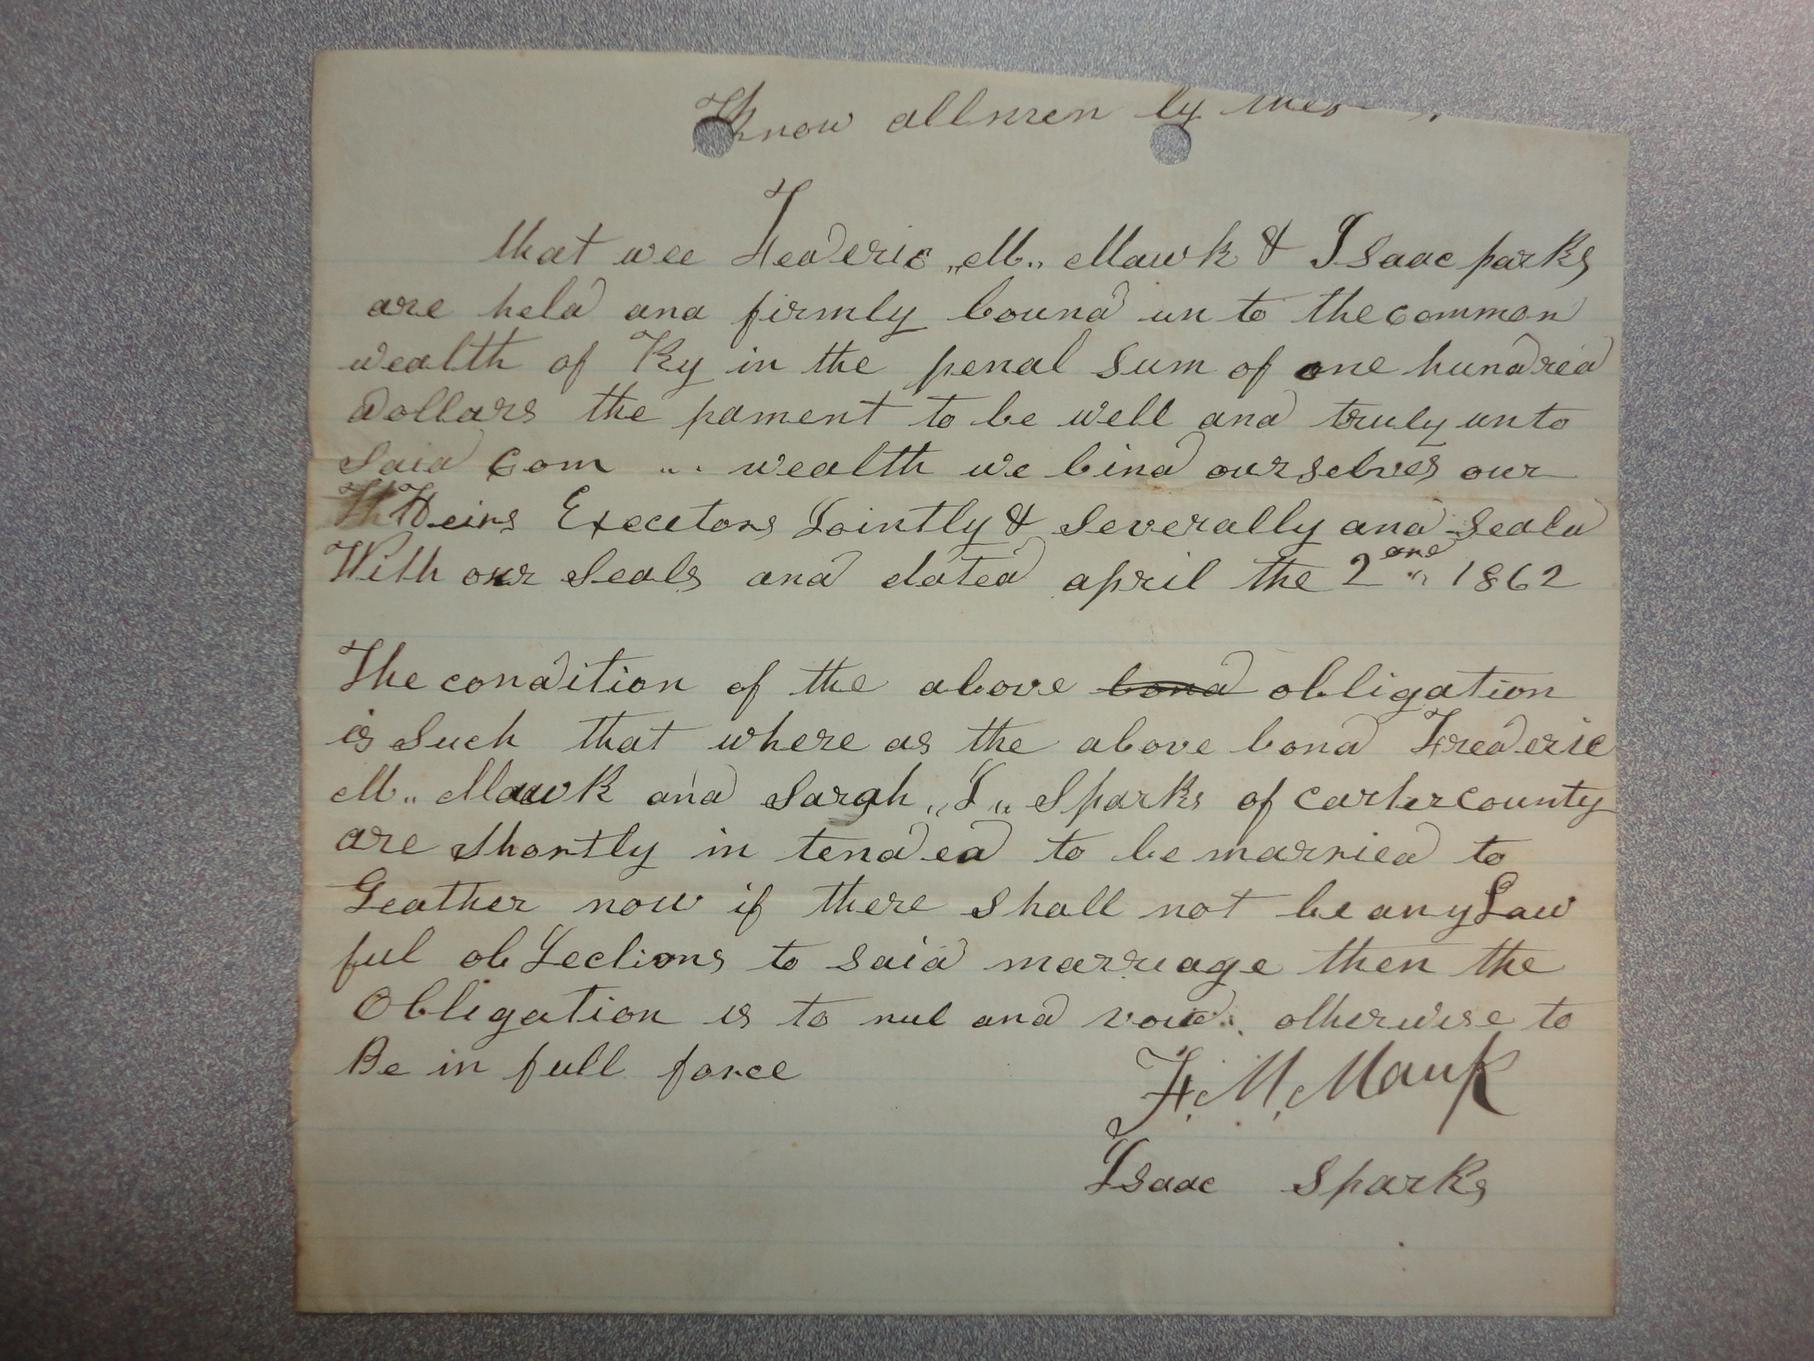 Know all men by these
that wee Frederic „M„ Mawk & Isaac parks
are held and firmly bound un to the common
wealth of Ky in the penal sum of one hundred
dollars the pament to be well and truly unto
said Com wealth we bind ourselves our
Heirs Execetors Jointly & Severally and Seald
With our Seals and dated april the 2and 1862
The condition of the above bond obligation
is Such that where as the above bond Frederic
M„ Mawk and Sarah „J„ Sparks of carter county
are shortly in tended to be married to
Geather now if there shall not be any Law
ful ob Jections to said marriage then the
Obligation is to nul and void otherwise to
Be in full force
F. M. Mauk
Isaac Sparks